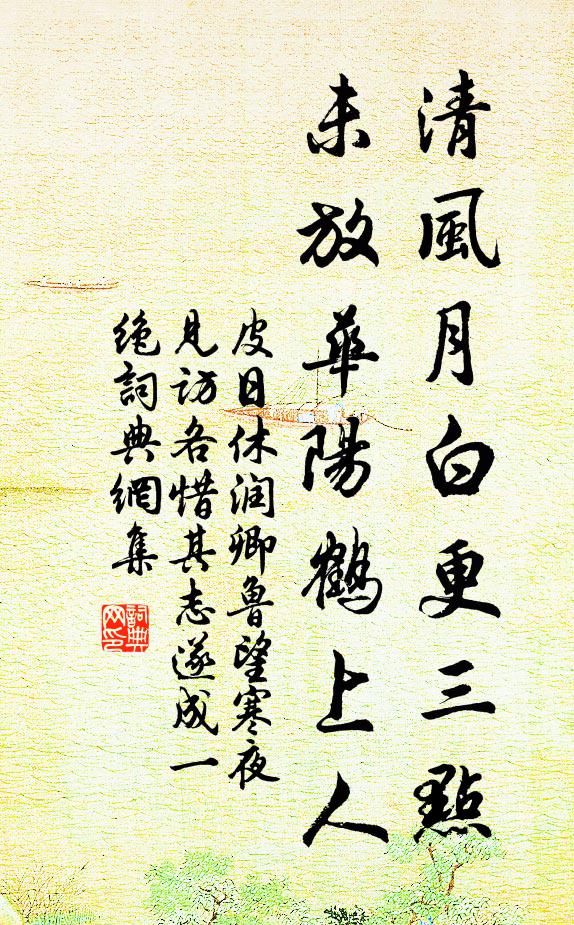 清風月白更三點
未放華陽鶴上人
皮日休润卿鲁望寒夜
見访各惜其志遂成一
绝詞典網集
詞典
网印